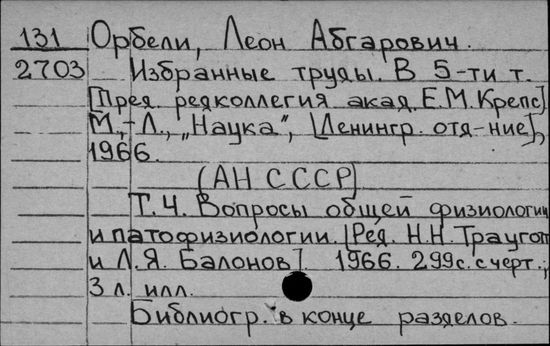 131 Орбели, Леон Абгарович.
2703 Избранные труды. В 5-ти т.
[Пред. редколлегия акад. Е.М. Крепс]
М.,-Л., „Наука", [Ленингр. отд-ние],
1966.
(АН СССР)
Т.4. Вопросы общей физиологии
и патофизиологии. [Ред. Н.Н. Трауготт
и Л.Я. Балонов]. 1966. 299с. с черт.;
3 л. илл.
Библиогр. в конце разделов.